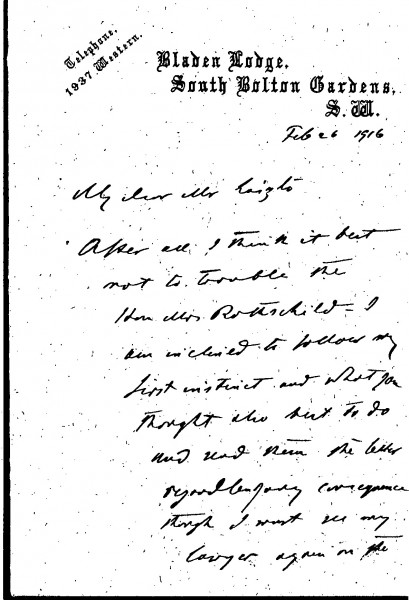 Telephone,
1937 Western.
Bladen Lodge,
South Bolton Gardens,
S.W.
Feb 26 1916
My dear Mr
After all I think it best
not to trouble the
Hon Mrs Rothschild - I
am inclined to follow my
first instinct and what you
thought also best to do
and send them the letter
regardless of any consequence
though I must see my
lawyer again on the